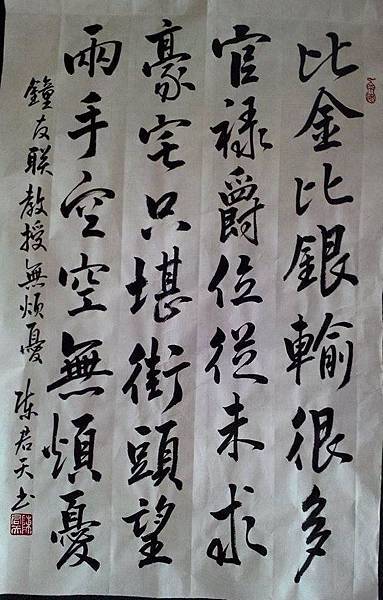 比金比銀輸很多
官祿爵位從未求
豪宅只堪街頭望
兩手空空無煩憂
鐘友联教授無煩憂 陈君天书